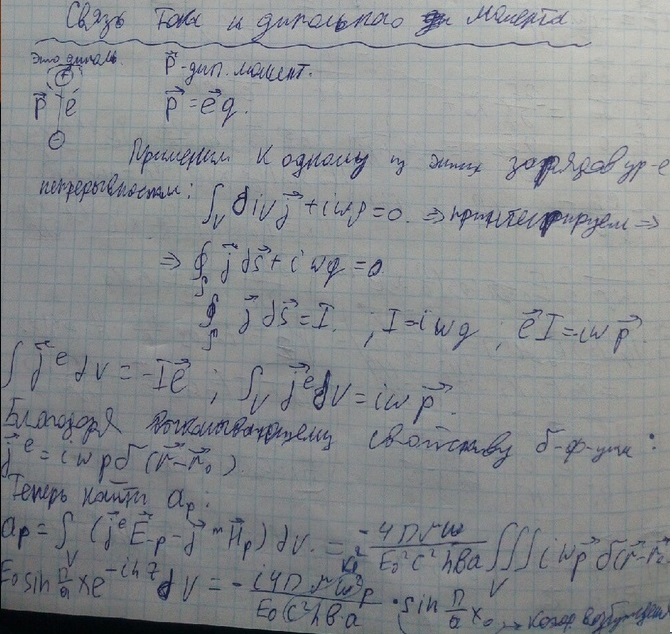 Связь тока и дипольного момента
Это диполь
+
p⃗ -дип. момент.
p⃗ ℓ⃗
p⃗ = ℓ⃗q.
-
Применим к одному из этих зарядов ур-е
непрерывности: ∫_V div j⃗ + iωρ = 0. ⇒ проинтегрируем ⇒
⇒ ∮_S j⃗ ds⃗ + iωq = 0
∮_S j⃗ ds⃗ = I. ; I = -iωq ; ℓ⃗I = -iωp⃗.
∫ j⃗^e dV = -Iℓ⃗ ; ∫_V j⃗^e dV = iωp⃗.
Благодаря выкалывающему свойству δ-ф-ции:
j⃗^e = iωpδ(r⃗-r⃗₀).
Теперь найти a_p:
a_p = ∫_V (j⃗^e E⃗_-p - j⃗^m H⃗_p) dV. =
∫∫∫_V iωp⃗ δ(r⃗-r⃗₀
E₀ sin π/a x e^-ihz dV =
• sin π/a x₀